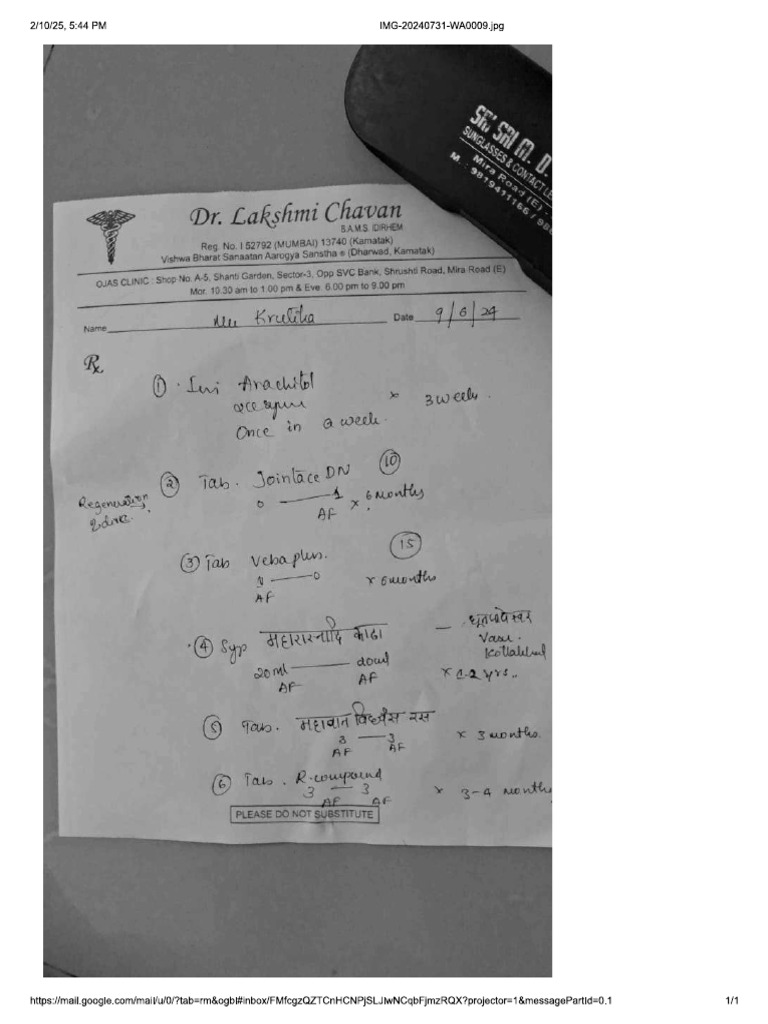 2/10/25, 5:44 PM
IMG-20240731-WA0009.jpg
SRI SRI M. D.
SUNGLASSES & CONTACT LE
Mira Road (E).
M. : 9819411166 / 98
Dr. Lakshmi Chavan
B.A.M.S. IDIRHEM
Reg. No. I 52792 (MUMBAI) 13740 (Karnatak)
Vishwa Bharat Sanaatan Aarogya Sanstha (Dharwad, Karnatak)
OJAS CLINIC : Shop No. A-5, Shanti Garden, Sector-3, Opp SVC Bank, Shrushti Road, Mira Road (E)
Mor. 10.30 am to 1.00 pm & Eve. 6.00 pm to 9.00 pm
Name Date 9/6/24
Rx
① Arachitol
× 3 week.
Once in a week.
② Tab. Jointace DN ⑩
0 — 1 × 6 months
AF
Regeneration
③ Tab ⑮
— 0 × 6 months
AF
④ Syp महारास्नादि काढा —
20ml
AF AF
⑤ Tab. महावात विध्वंस रस
3 — 3 × 3 months.
AF AF
⑥ Tab. R-compound
3 — 3 × 3-4 months
AF AF
PLEASE DO NOT SUBSTITUTE
https://mail.google.com/mail/u/0/?tab=rm&ogbl#inbox/FMfcgzQZTCnHCNPjSLJlwNCqbFjmzRQX?projector=1&messagePartId=0.1
1/1